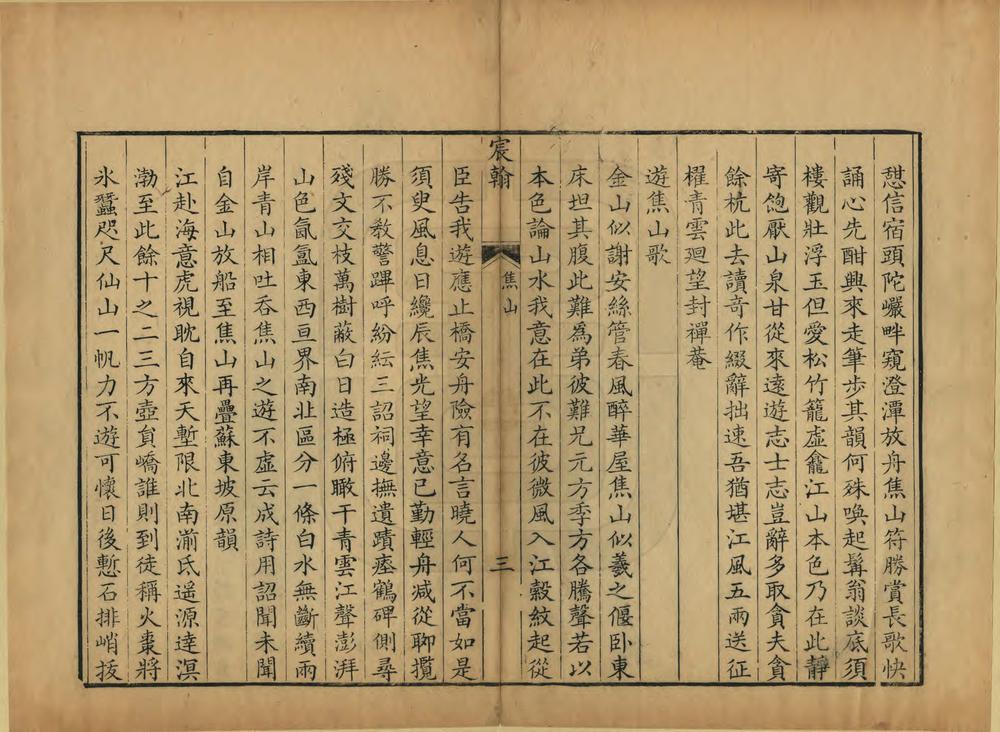 憇信宿頭陀巗畔窺澄潭放舟焦山符勝賞長歌快
誦心先酣興來走筆步其韻何殊喚起髯翁談底須
樓觀壯浮玉但愛松竹籠虛龕江山本色乃在此靜
寄飽厭山泉甘從來遠遊志士志豈辭多取貪夫貪
餘杭此去讀竒作綴辭拙速吾猶堪江風五兩送征
櫂青雲迴望封禪菴
遊焦山歌
金山似謝安絲管春風醉華屋焦山似羲之偃卧東
床坦其腹此難為弟彼難兄元方季方各騰聲若以
本色論山水我意在此不在彼微風入江縠紋起從
宸翰
焦山
三
臣告我遊應止橋安舟險有名言曉人何不當如是
須臾風息日纔辰焦光望幸意已勤輕舟減從聊攬
勝不教警蹕呼紛紜三詔祠邊撫遺蹟瘞鶴碑側尋
殘文交枝萬樹蔽白日造極俯瞰干青雲江聲澎湃
山色氤氳東西亘界南北區分一條白水無斷續兩
岸青山相吐吞焦山之遊不虛云成詩用詔聞未聞
自金山放船至焦山再疊蘇東坡原韻
江赴海意虎視眈自來天塹限北南湔氐遥源達溟
渤至此餘十之二三方壺貟嶠誰則到徒稱火棗將
氷蠶咫尺仙山一帆力不遊可懷日後慙石排峭拔